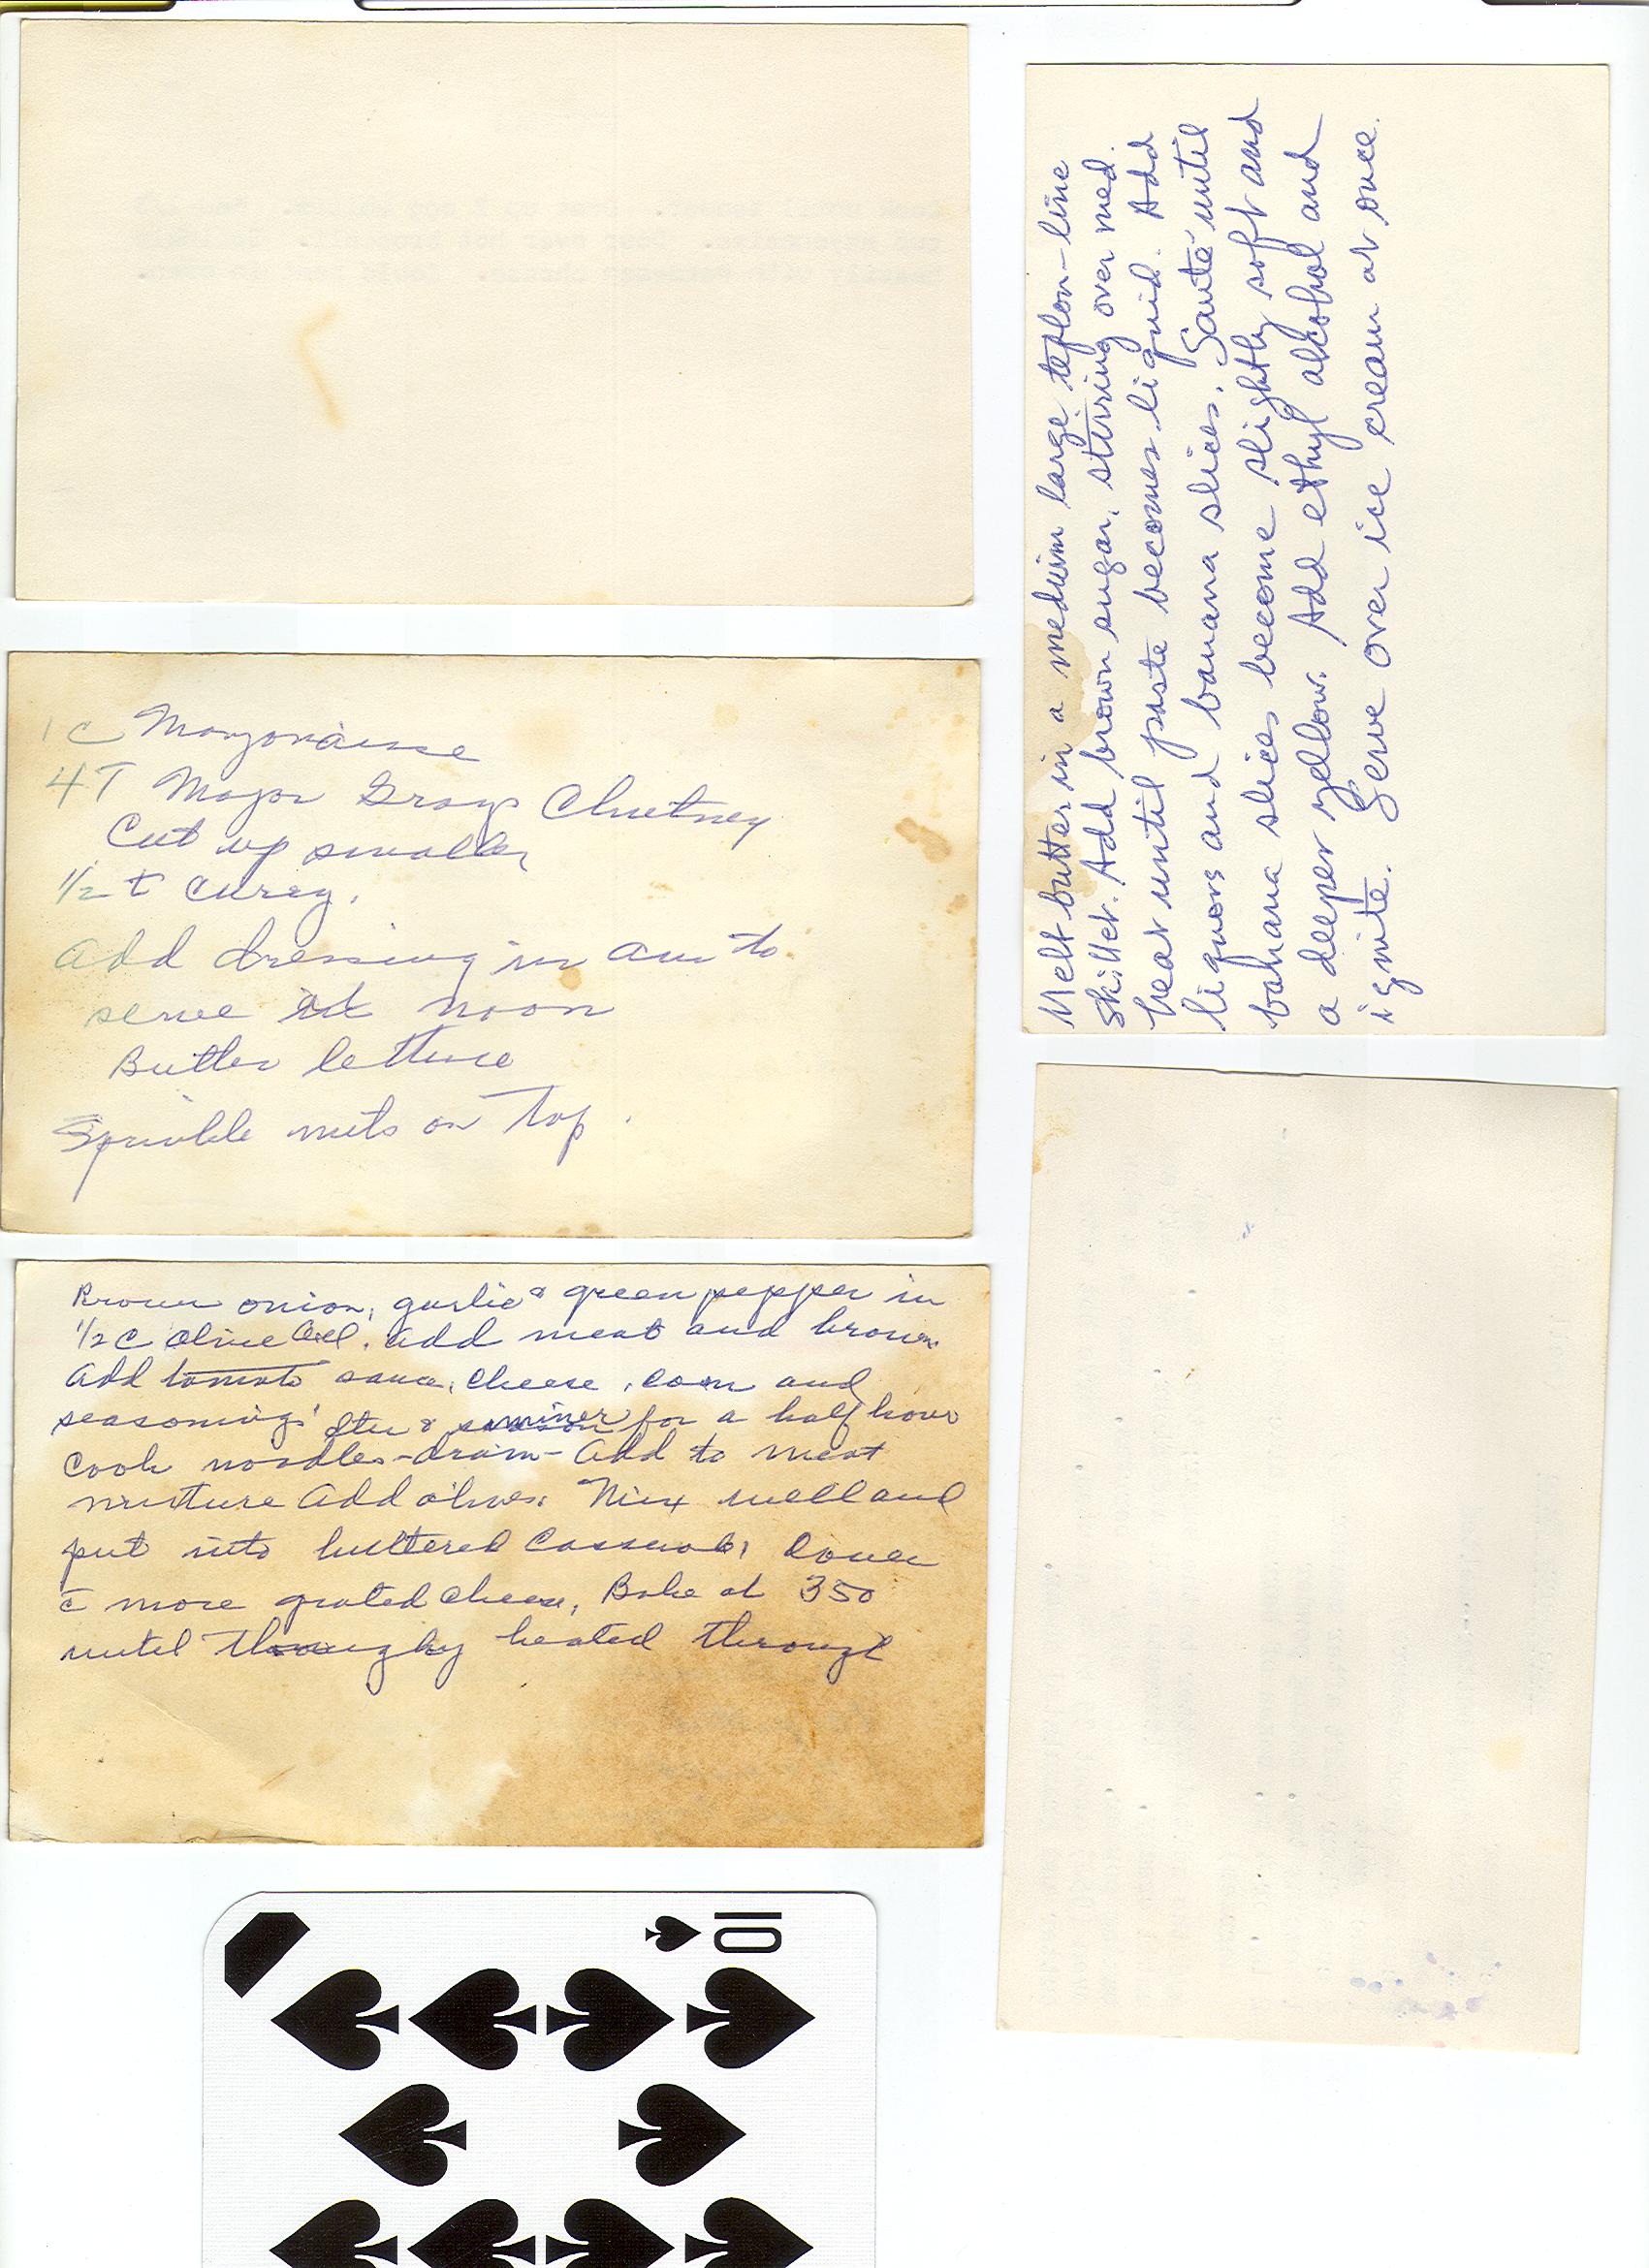 1 C Mayonaisse
4 T Major Grays Chutney
Cut up smaller
1/2 t curry.
add dressing in am to
serve at noon
Butter lettuce
Sprinkle nuts on Top.
Brown onion, garlic & green pepper in
1/2 C Olive Oil. add meat and brown
add tomato sauce, cheese, corn and
seasonings. Stir & simmer for a half hour
Cook noodles - drain - add to meat
mixture Add olives. Mix well and
put into buttered Casserole, Cover
c̄ more grated cheese, Bake at 350
until heated through
Melt butter in a medium large teflon-line
skillet. Add brown sugar, stirring over med.
heat until paste becomes liquid. Add
liquors and banana slices. Sauté until
banana slices become slightly soft and
a deeper yellow. Add ethyl alcohol and
ignite. Serve over ice cream at once.
10